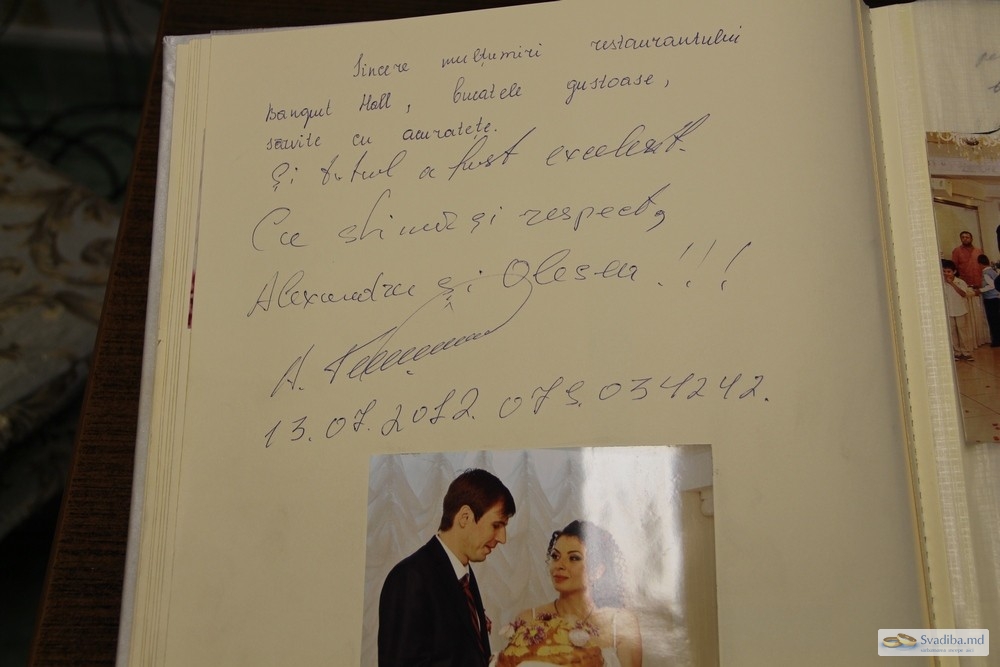 Sincere mulțumiri restaurantului
Banqut Hall, bucatele gustoase,
servite cu acuratețe.
Și totul a fost excelent.
Cu stimă și respect,
Alexandru și Olesea !!!
A.
13.07.2012. 079.034242.
Svadiba.md